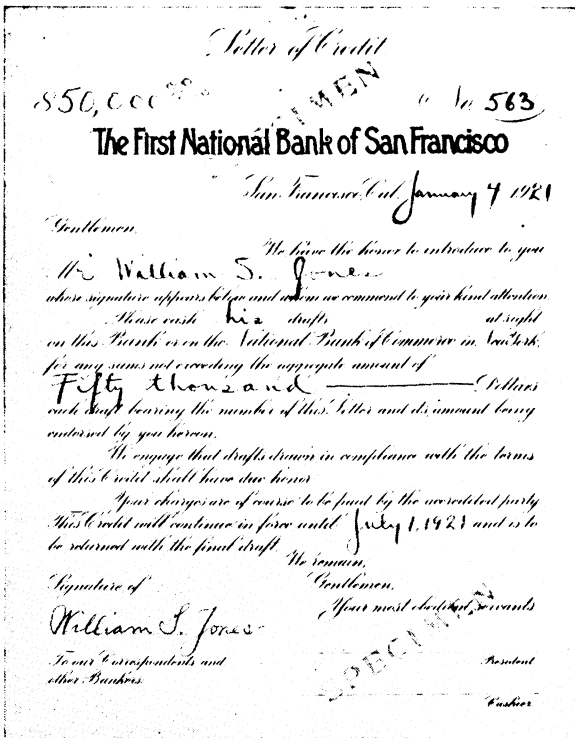 Letter of Credit
$50,000 00/00 SPECIMEN No 563
The First National Bank of San Francisco
San Francisco, Cal. January 4 1921
Gentlemen,
We have the honor to introduce to you
Mr William S. Jones
whose signature appears below and whom we commend to your kind attention
Please cash his drafts at sight
on this Bank or on the National Bank of Commerce in New York,
for any sums not exceeding the aggregate amount of
Fifty thousand Dollars
each draft bearing the number of this Letter and its amount being
endorsed by you hereon.
We engage that drafts drawn in compliance with the terms
of this Credit shall have due honor
Your charges are of course to be paid by the accredited party
This Credit will continue in force until July 1, 1921 and is to
be returned with the final draft.
We remain,
Signature of Gentlemen,
Your most obedient servants
William S. Jones
SPECIMEN
To our Correspondents and President
other Bankers.
Cashier